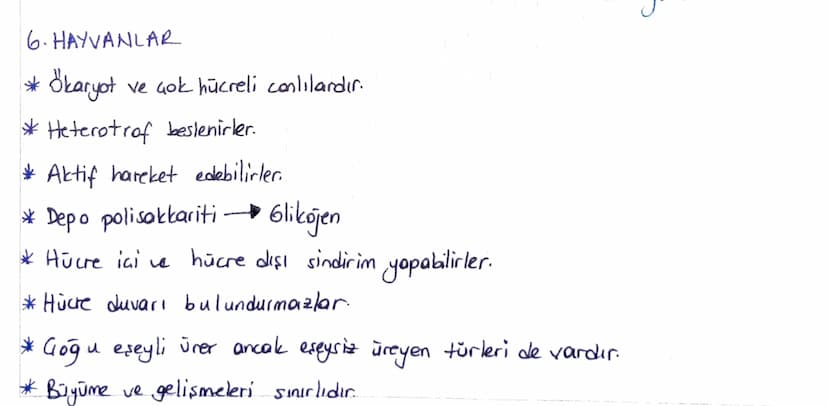 6. HAYVANLAR
* Ökaryot ve çok hücreli canlılardır.
* Heterotrof beslenirler.
* Aktif hareket edebilirler.
* Depo polisakkariti → Glikojen
* Hücre içi ve hücre dışı sindirim yapabilirler.
* Hücre duvarı bulundurmazlar.
* Çoğu eşeyli ürer ancak eşeysiz üreyen türleri de vardır.
* Büyüme ve gelişmeleri sınırlıdır.